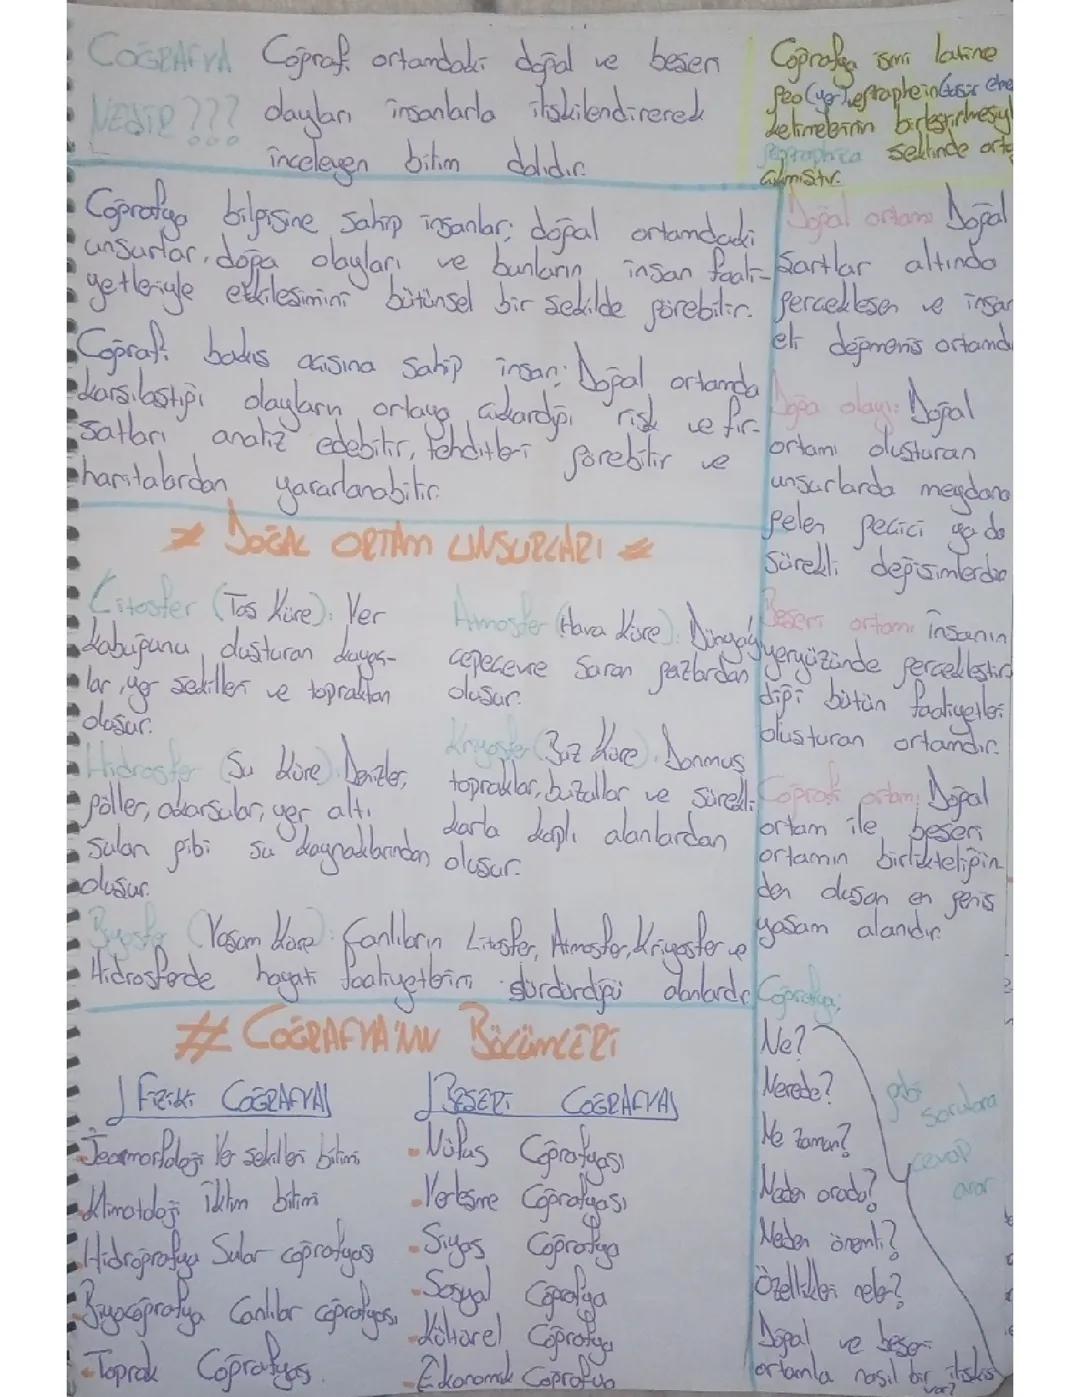 COĞRAFYA
NEDİR???
Coğraf. ortamdaki doğal ve beşeri
olayları insanlarla ilişkilendirerek
inceleyen bilim dalıdır.
Coğrafya ismi latince
geo (yer) ve graphein
kelimelerinin birleştirilmesiyl
şeklinde orta
çıkmıştır.
Coğrafya bilgisine sahip insanlar; doğal ortamdaki
unsurlar, doğa olayları ve bunların insan faali-
yetleriyle etkileşimini bütünsel bir şekilde görebilir.
Coğrafi bakış açısına sahip insan; Doğal ortamda
karşılaştığı olayların ortaya çıkardığı risk ve fır-
satları analiz edebilir, tehditleri görebilir ve
haritalardan yararlanabilir.
≠ DOĞAL ORTAM UNSURLARI ≠
Litosfer (Taş Küre): Yer
kabuğunu oluşturan kayaç-
lar, yer şekilleri ve topraktan
oluşur.
Hidrosfer (Su Küre): Denizler,
göller, akarsular, yer altı
suları gibi su kaynaklarından
oluşur.
Atmosfer (Hava Küre): Dünyayı
çepeçevre saran gazlardan
oluşur.
Kryosfer (Buz Küre): Donmuş
topraklar, buzullar ve sürekli
karla kaplı alanlardan
oluşur.
Biyosfer (Yaşam Küre): Canlıların Litosfer, Atmosfer, Kriyosfer ve
Hidrosferde hayati faaliyetlerini sürdürdüğü alanlardır
# COĞRAFYA'NIN BÖLÜMLERİ
FİZİKİ COĞRAFYA
Jeomorfoloji Yer şekilleri bilimi
Klimatoloji İklim bilimi
Hidrografya Sular coğrafyası
Biyocoğrafya Canlılar coğrafyası
Toprak Coğrafyası.
BEŞERİ COĞRAFYA
Nüfus Coğrafyası
Yerleşme Coğrafyası
Siyasi Coğrafya
Sosyal Coğrafya
Kültürel Coğrafya
Ekonomik Coğrafya
Doğal ortam: Doğal
şartlar altında
gerçekleşen ve insan
eli değmemiş ortamdı
Doğa olayı: Doğal
ortamı oluşturan
unsurlarda meydana
gelen geçici ya da
sürekli değişimlerdir
Beşeri ortam: İnsanın
yeryüzünde gerçekleştir
diği bütün faaliyetleri
oluşturan ortamdır.
Coğrafi ortam: Doğal
ortam ile beşeri
ortamın birlikteliğin
den oluşan en geniş
yaşam alanıdır.
Coğrafya;
Ne?
Nerede?
Ne zaman?
Neden orada?
Neden önemli?
Özellikleri neler?
Doğal ve beşeri
ortamla nasıl bir ilişkisi
var?
gibi
sorulara
cevap
arar